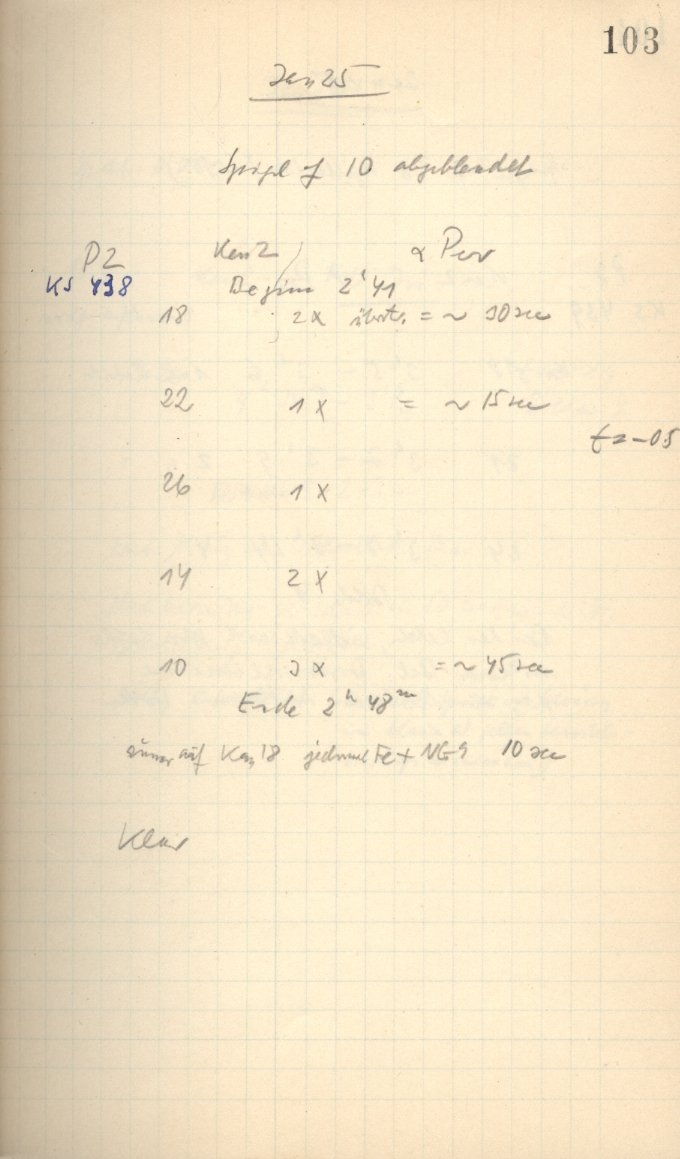 103
Jan 25
Spigel f 10 abgeblendet
P2 Kam 2 α Per
KS 438 Beginn 2ʰ 41
18 2x = ~ 30 sec
22 1x = ~ 15 sec
t = -0.5
26 1x
14 2x
10 3x = ~ 45 sec
Ende 2ʰ 48ᵐ
auf Kam 18 jedesmal Fe + NG9 10 sec
Klar